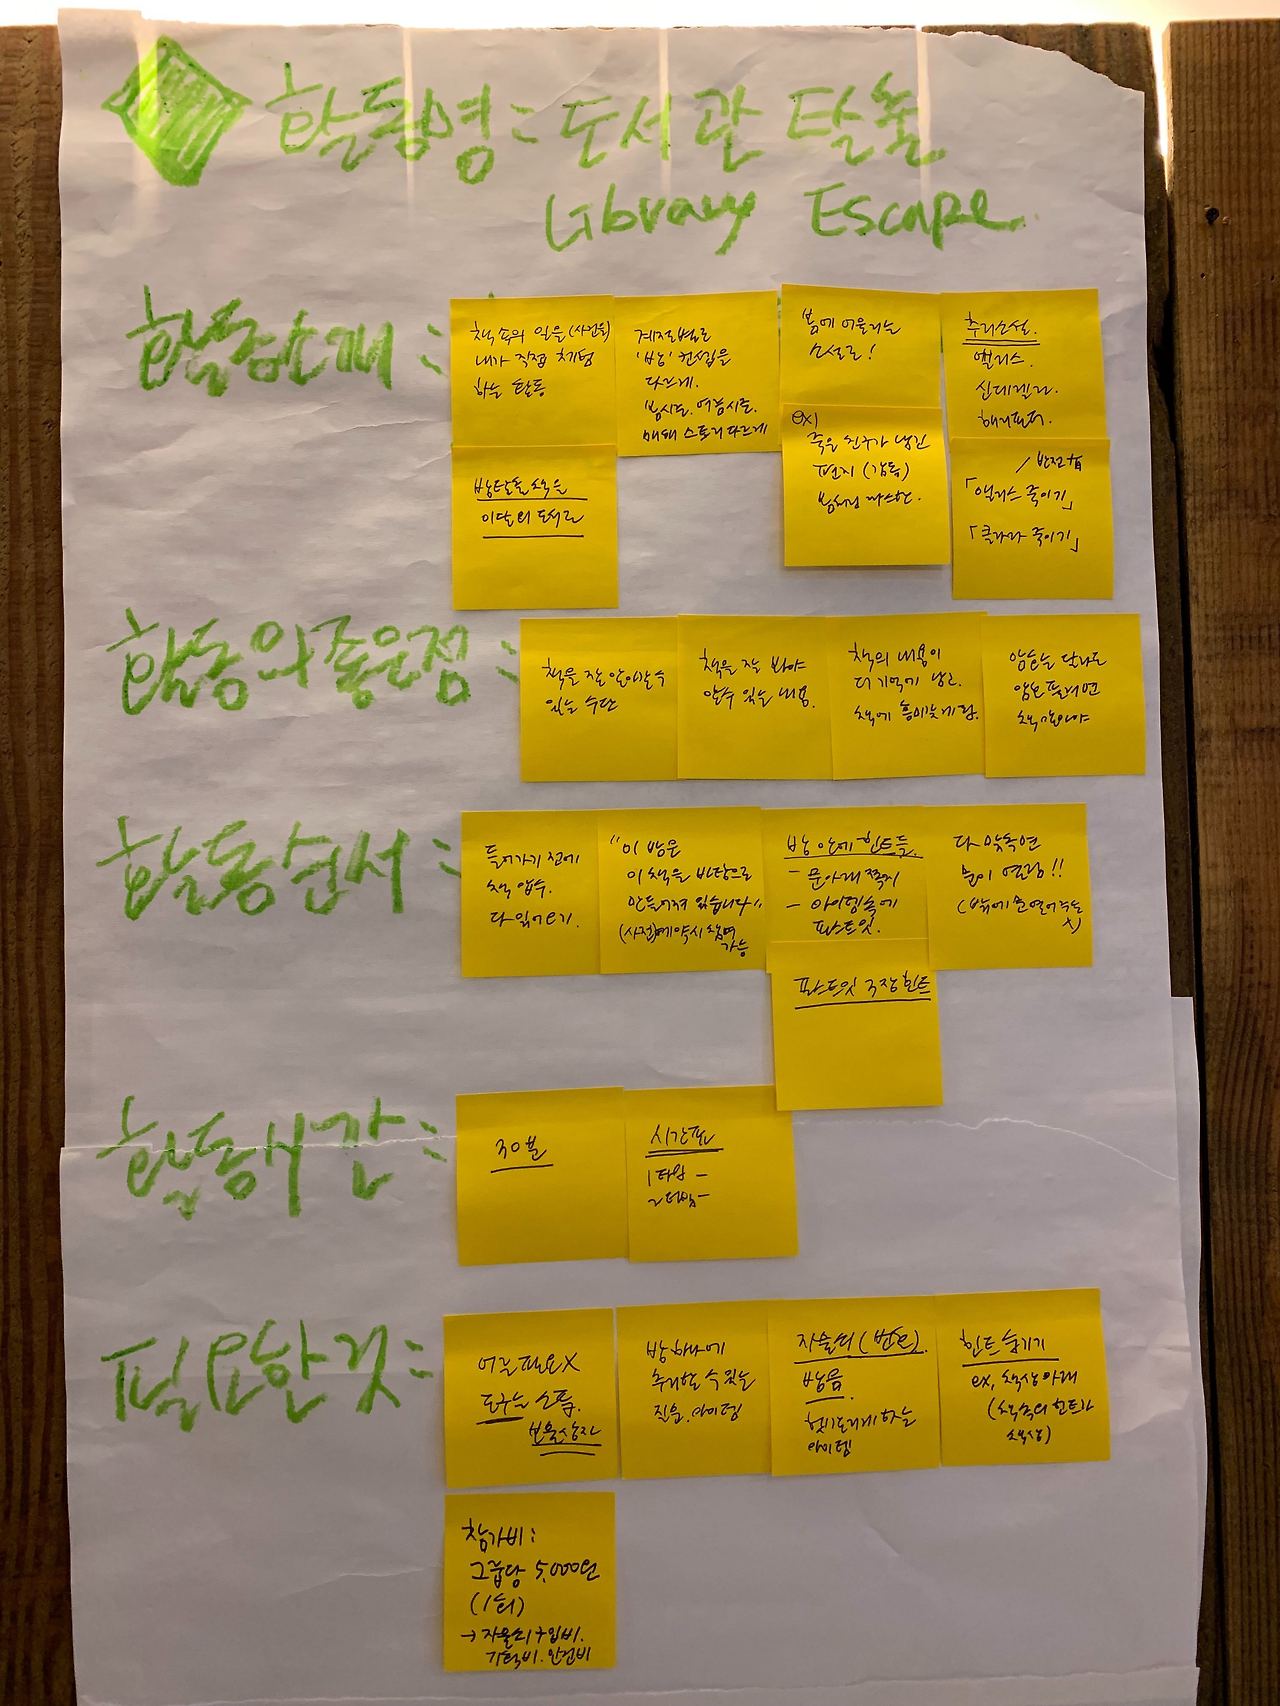 활동명 : 도서관 탈출
Library Escape.
활동소개 :
책 속의 일을 (사건을)
내가 직접 체험
하는 활동
계절별로
'방' 컨셉을
다르게.
봄시즌. 여름시즌.
매해 스토리 다르게
봄에 어울리는
소설로!
추리소설.
앨리스.
신데렐라.
해리포터.
방탈출 소식은
이달의 도서로
ex)
죽은 친구가 남긴
편지 (감동)
봄처럼 따스한.
/ 반전有
「앨리스 죽이기」
「클라라 죽이기」
활동의 좋은점 :
책을 잘 알아갈 수
있는 수단
책을 잘 봐야
알 수 있는 내용.
책의 내용이
더 기억에 남고.
책에 흥미있게 함.
암호는 단서로
암호 풀려면
책 읽어야
활동순서 :
들어가기 전에
책 압수.
다 읽어오기.
"이 방은
이 책을 바탕으로
만들어져 있습니다"
(사전)예약시 참여
가능
방 안에 힌트들.
- 문아래 쪽지
- 아이템속에
포스트잇.
다 맞추면
문이 열림!!
(밖에 문 열어주는
x)
포스트잇 3장 힌트
활동시간 :
30분
시간표
1타임 -
2타임 -
필요한 것 :
어른 필요X
도구는 소품.
보물상자
방 하나에
추리할 수 있는
질문. 아이템
자물쇠 (번호).
방음.
헷갈리게 하는
아이템
힌트 숨기기
ex, 책상 아래
(책 속의 힌트가
책상)
참가비 :
그룹당 5,000원
(1회)
→ 자물쇠 구입비.
기획비. 안전비